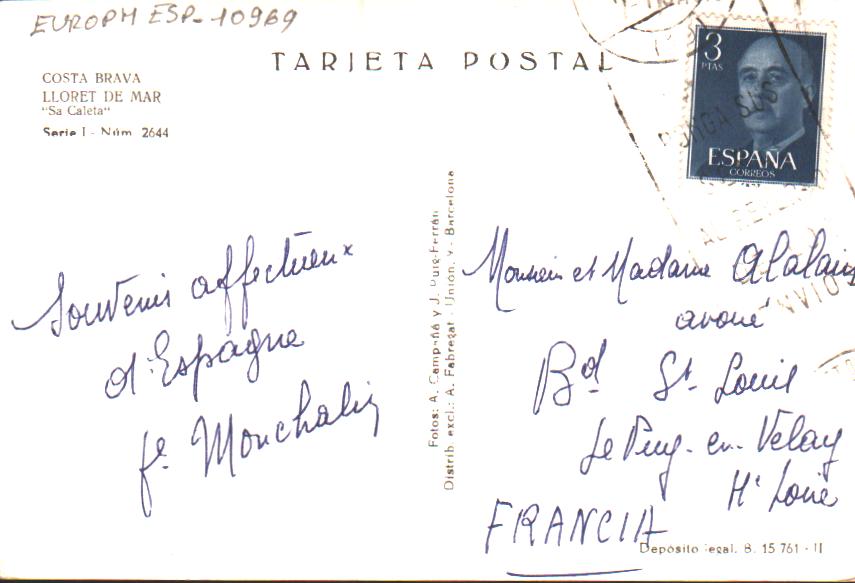 EUROPM ESP-10969
TARJETA POSTAL
COSTA BRAVA
LLORET DE MAR
"Sa Caleta"
Serie I - Núm. 2644
3
PTAS
ESPAÑA
CORREOS
PONGA SUS
Souvenir affectueux
d'Espagne
fe Monchalin
Fotos: A. Campañá y J. Puig-Ferrán
Distrib. excl.: A. Fabregat - Unión, - Barcelona
Monsieur et Madame Alalain
avoué
Bd St. Louis
Le Puy-en-Velay
Hte Loire
FRANCIA
Depósito legal. B. 15 761 - II